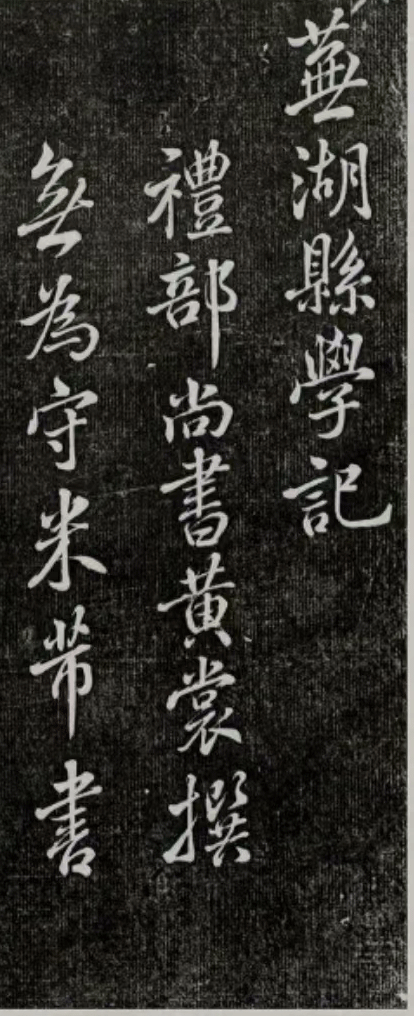 蕪湖縣學記
禮部尚書黄裳撰
無為守米芾書